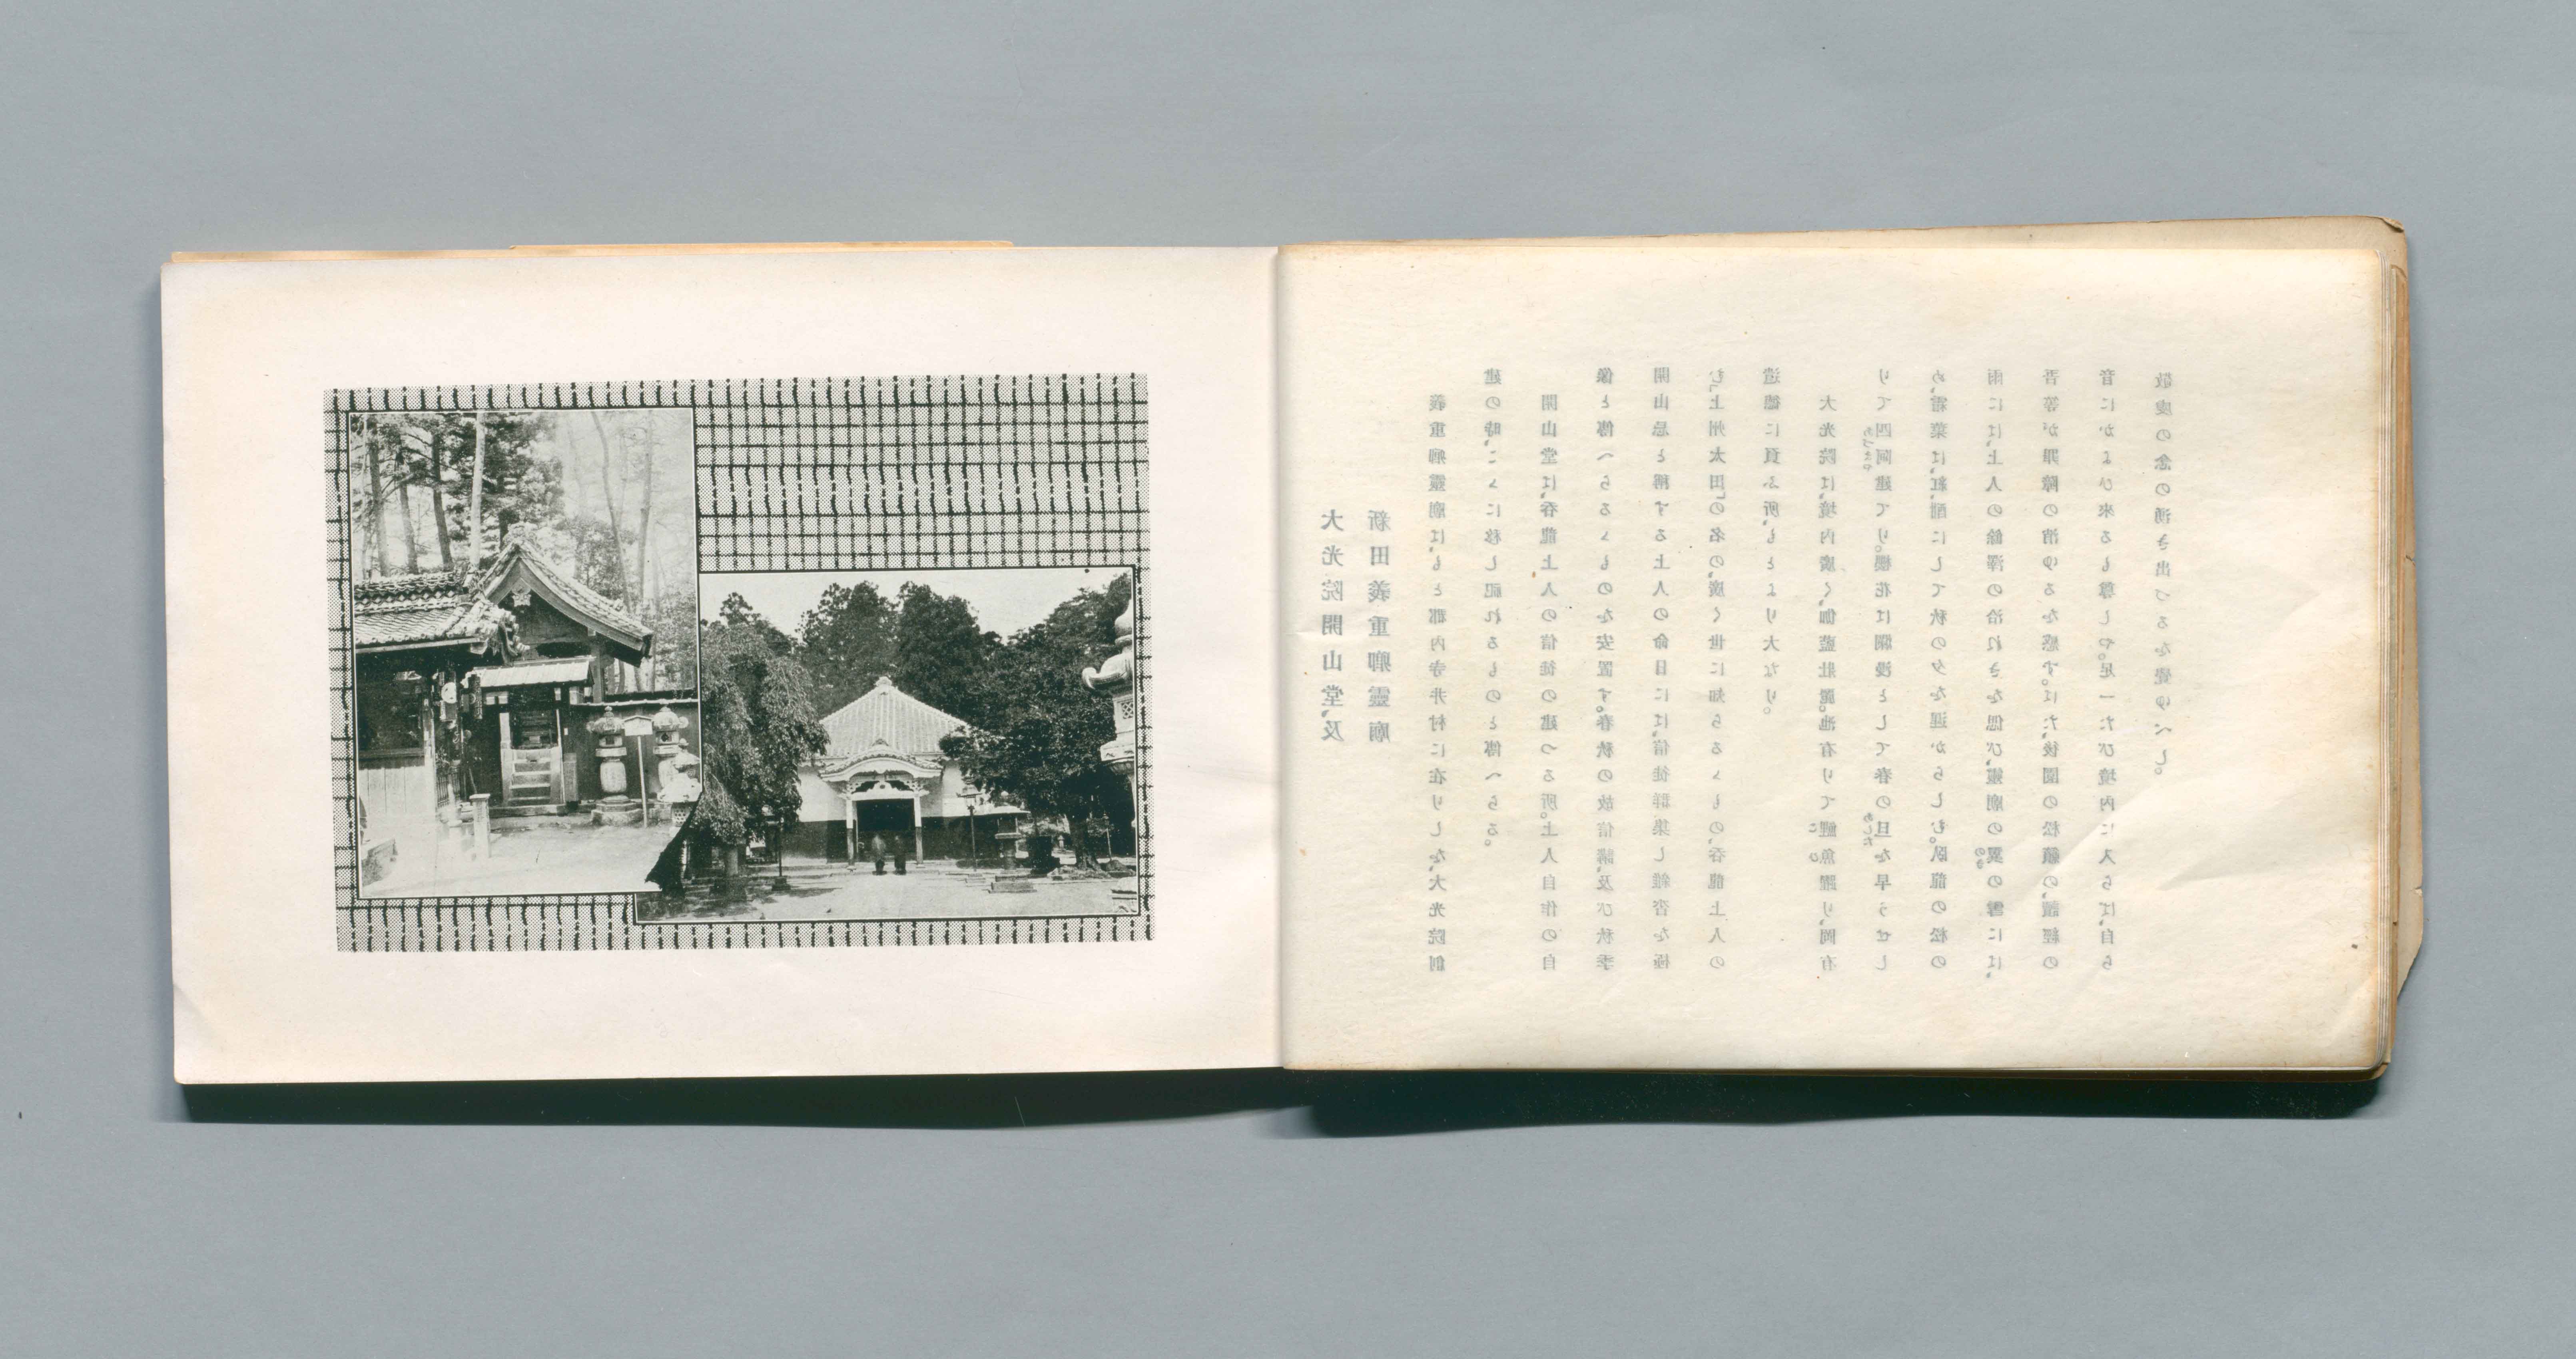 大光院開山堂、及
新田義重卿靈廟
義重卿靈廟は、もと郡内寺井村に在りしを、大光院創
建の時、こゝに移し祀れるものと傳へらる。
開山堂は、呑龍上人の信徒の建つる所。上人自作の自
像と傳へらるゝものを安置す。春秋の故信講、及び秋季
開山忌と稱する上人の命日には、信徒群集し雜沓を極
む。「上州太田」の名の、廣く世に知らるゝもの、呑龍上人の
遺德に負ふ所、もとより大なり。
大光院は、境内廣く、伽藍壯麗。池有りて鯉魚躍り、岡有
りて四阿建てり。櫻花は爛漫として春の旦を早うせし
め、霜葉は、紅酣にして秋の夕を遲からしむ。臥龍の松の
雨には、上人の餘澤の洽れきを偲び、靈廟の甍の雪には、
吾等が罪障の消ゆるを感ず。はた、後園の松籟の、讀經の
音にかよひ來るも尊しや。足一たび境内に入らば、自ら
敬虔の念の湧き出づるを覺ゆべし。